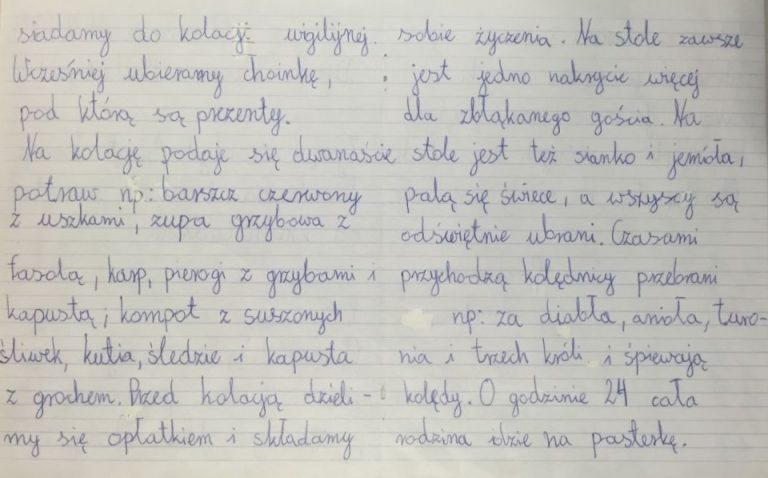 siadamy do kolacji wigilijnej.
Wcześniej ubieramy choinkę,
pod którą są prezenty.
Na kolację podaje się dwanaście
potraw np: barszcz czerwony
z uszkami, zupa grzybowa z
fasolą, karp, pierogi z grzybami i
kapustą, kompot z suszonych
śliwek, kutia, śledzie i kapusta
z grochem. Przed kolacją dzieli-
my się opłatkiem i składamy
sobie życzenia. Na stole zawsze
jest jedno nakrycie więcej
dla zbłąkanego gościa. Na
stole jest też sianko i jemioła,
palą się świece, a wszyscy są
odświętnie ubrani. Czasami
przychodzą kolędnicy przebrani
np: za diabła, anioła, turo-
nia i trzech króli i śpiewają
kolędy. O godzinie 24 cała
rodzina idzie na pasterkę.